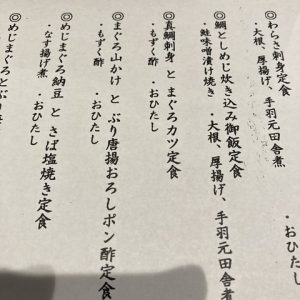 ◎わらさ刺身定食
・大根、厚揚げ、手羽元田舎煮
・おひたし
◎鯛としめじ炊き込み御飯定食
・鮭味噌漬け焼き・大根、厚揚げ、手羽元田舎
◎真鯛刺身 と まぐろカツ定食
・もずく酢 ・おひたし
◎まぐろ山かけ と ぶり唐揚おろしポン酢定食
・もずく酢 ・おひたし
◎めじまぐろ納豆 と さば塩焼き定食
・なす揚げ煮 ・おひたし
◎めじまぐろと